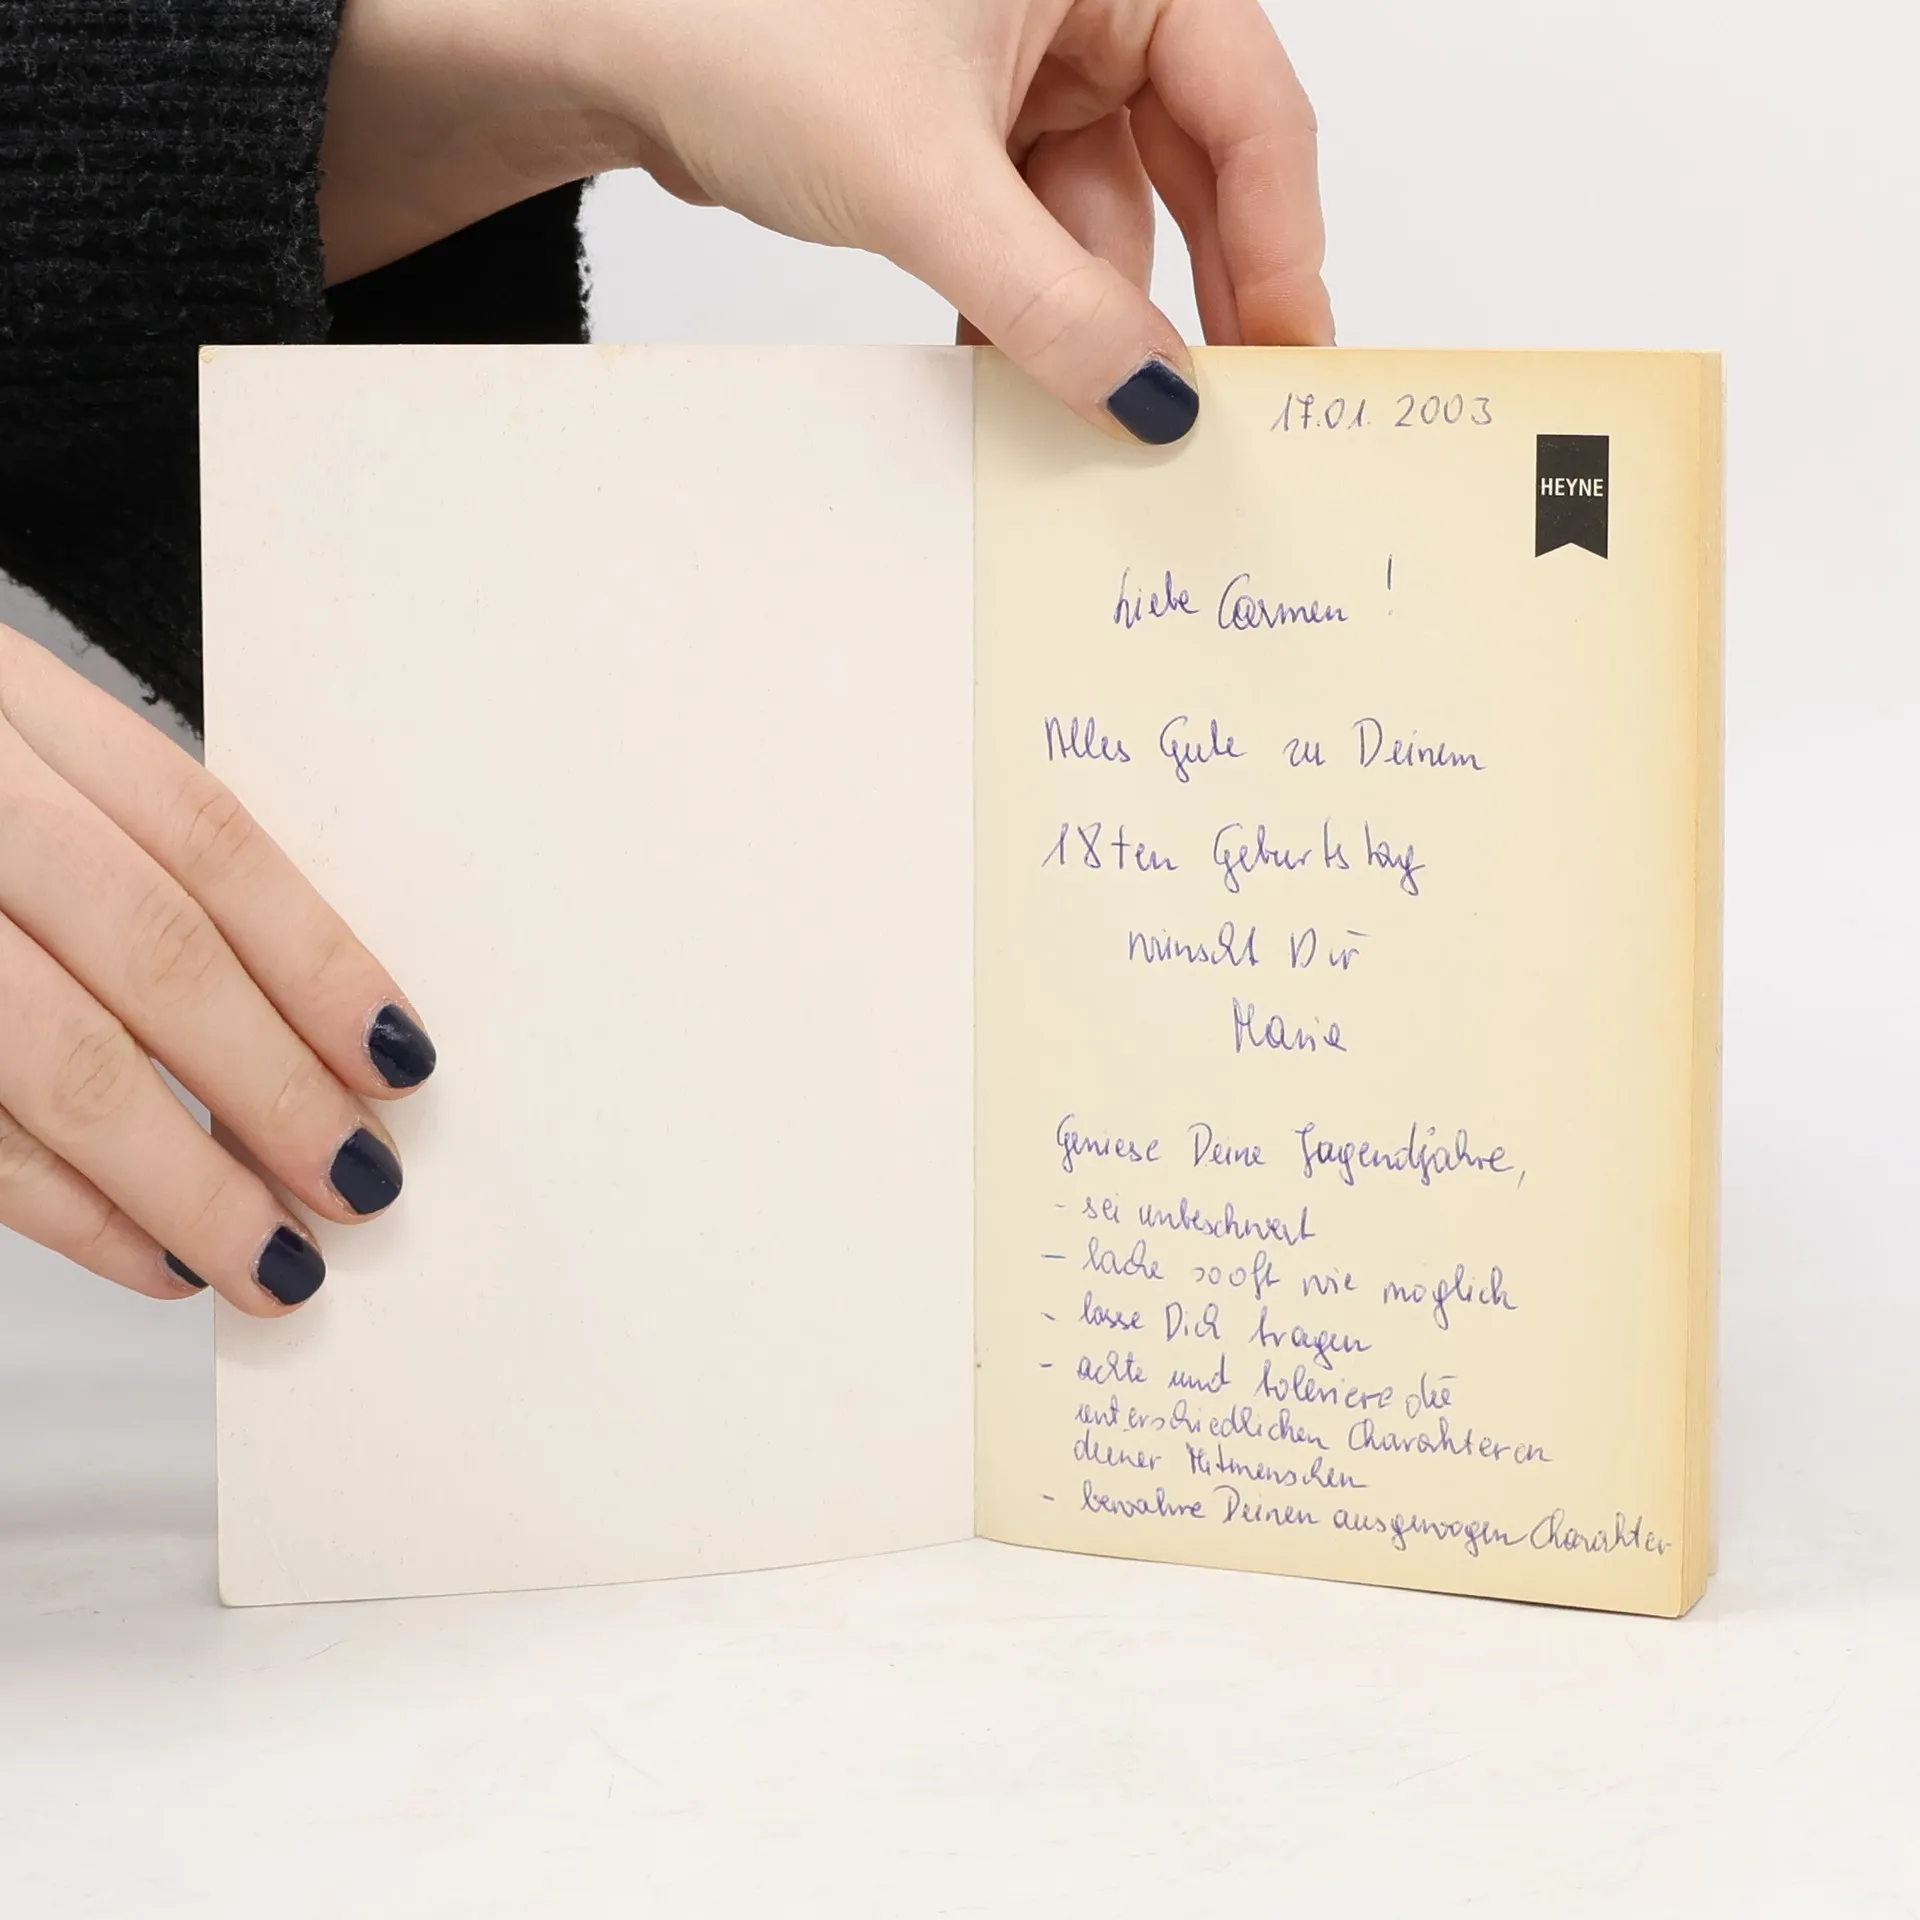 17.01. 2003
HEYNE
Liebe Carmen !
Alles Gute zu Deinem
18ten Geburtstag
wünscht Dir
Maria
Geniese Deine Jugendjahre,
- sei unbeschwert
- lache so oft wie möglich
- lasse Dich tragen
- achte und toleriere die
unterschiedlichen Charakteren
deiner Mitmenschen
- bewahre Deinen ausgewogen Charakter